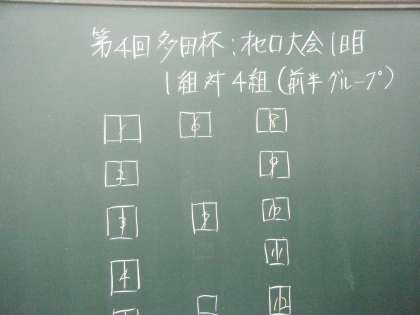 第4回多田杯:オセロ大会1日目
1組対4組(前半グループ)
1 6 8
2 9
3 7 10
11
4
12